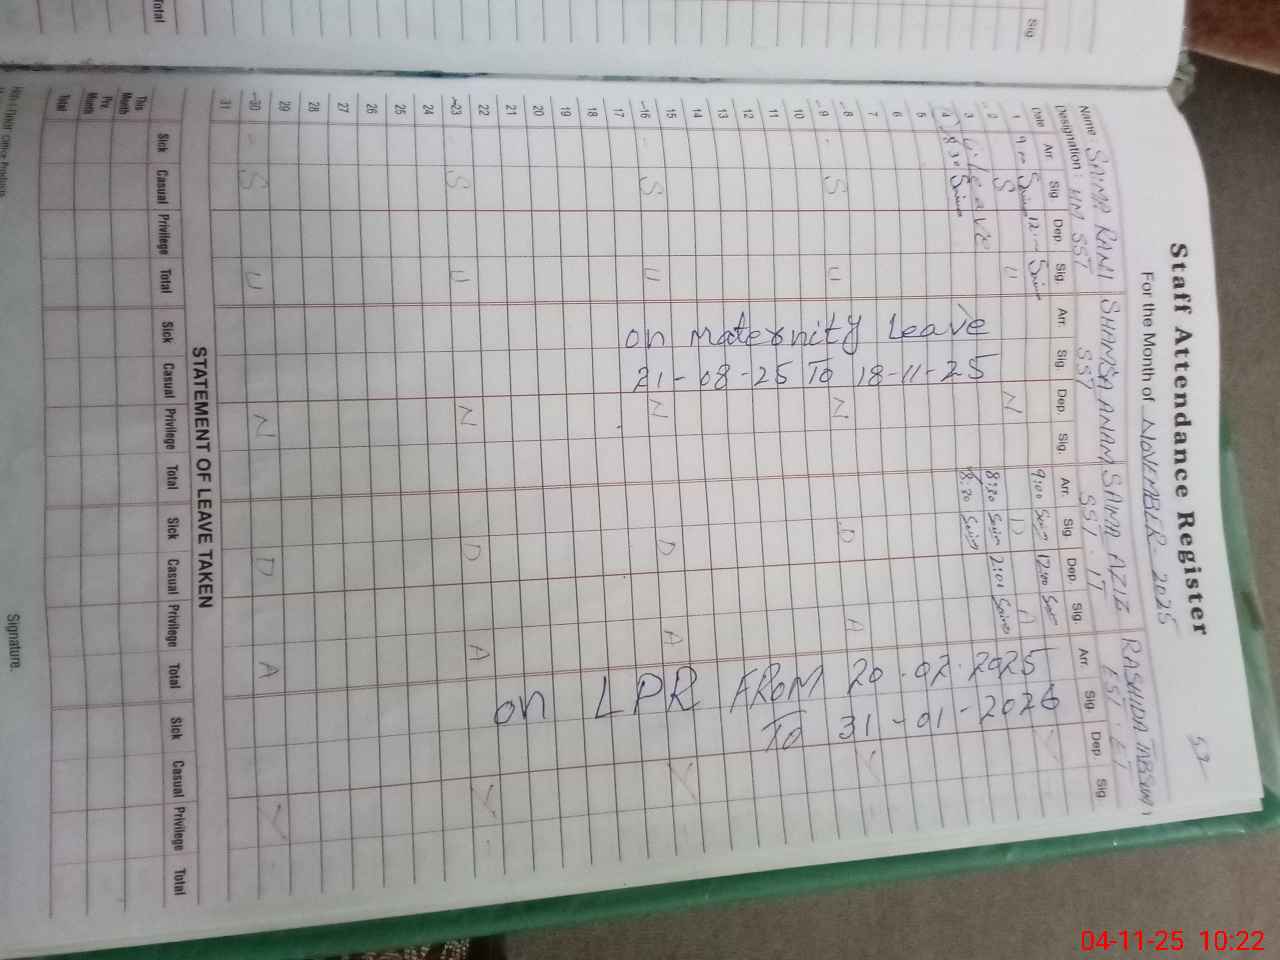 Staff Attendance Register
53
For the Month of NOVEMBER-2025
Name: SAIMA RANI SHAMSA ANAM SAIMA AZIZ RASHIDA TABSUM
Designation: HM SST SST SST-IT EST
Date Arr. Sig Dep. Sig. Arr. Sig. Dep. Sig. Arr. Sig. Dep. Sig. Arr. Sig Dep. Sig.
1 12:00 9:00 12:00
2 S U N 8:30 D 2:01 A
3 Leave 8:30
4 8:30
5
6
7
8
9 S U N D A Y
10
11
12
13
14
15
16 S U N D A Y
17
18
19
20
21
22
23 S U N D A Y
24
25
26
27
28
29
30 S U N D A Y
31
on Maternity Leave
21-08-25 To 18-11-25
on LPR FROM 20-02-2025
To 31-01-2026
STATEMENT OF LEAVE TAKEN
Sick Casual Privilege Total Sick Casual Privilege Total Sick Casual Privilege Total Sick Casual Privilege Total
This Month
Pre. Month
Total
Signature.
Sig
Total
04-11-25 10:22